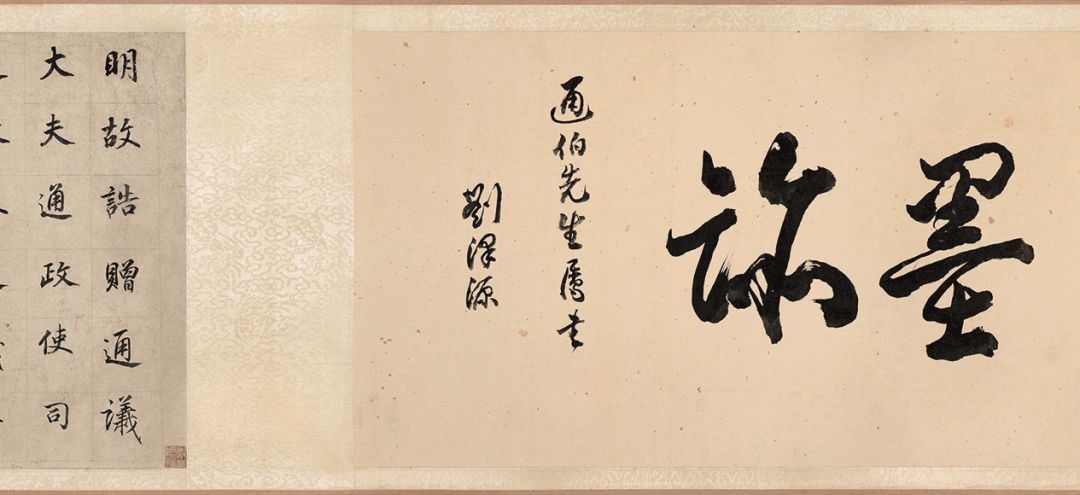 墨跡
通伯先生屬書
劉澤源
明故誥贈通議
大夫通政使司